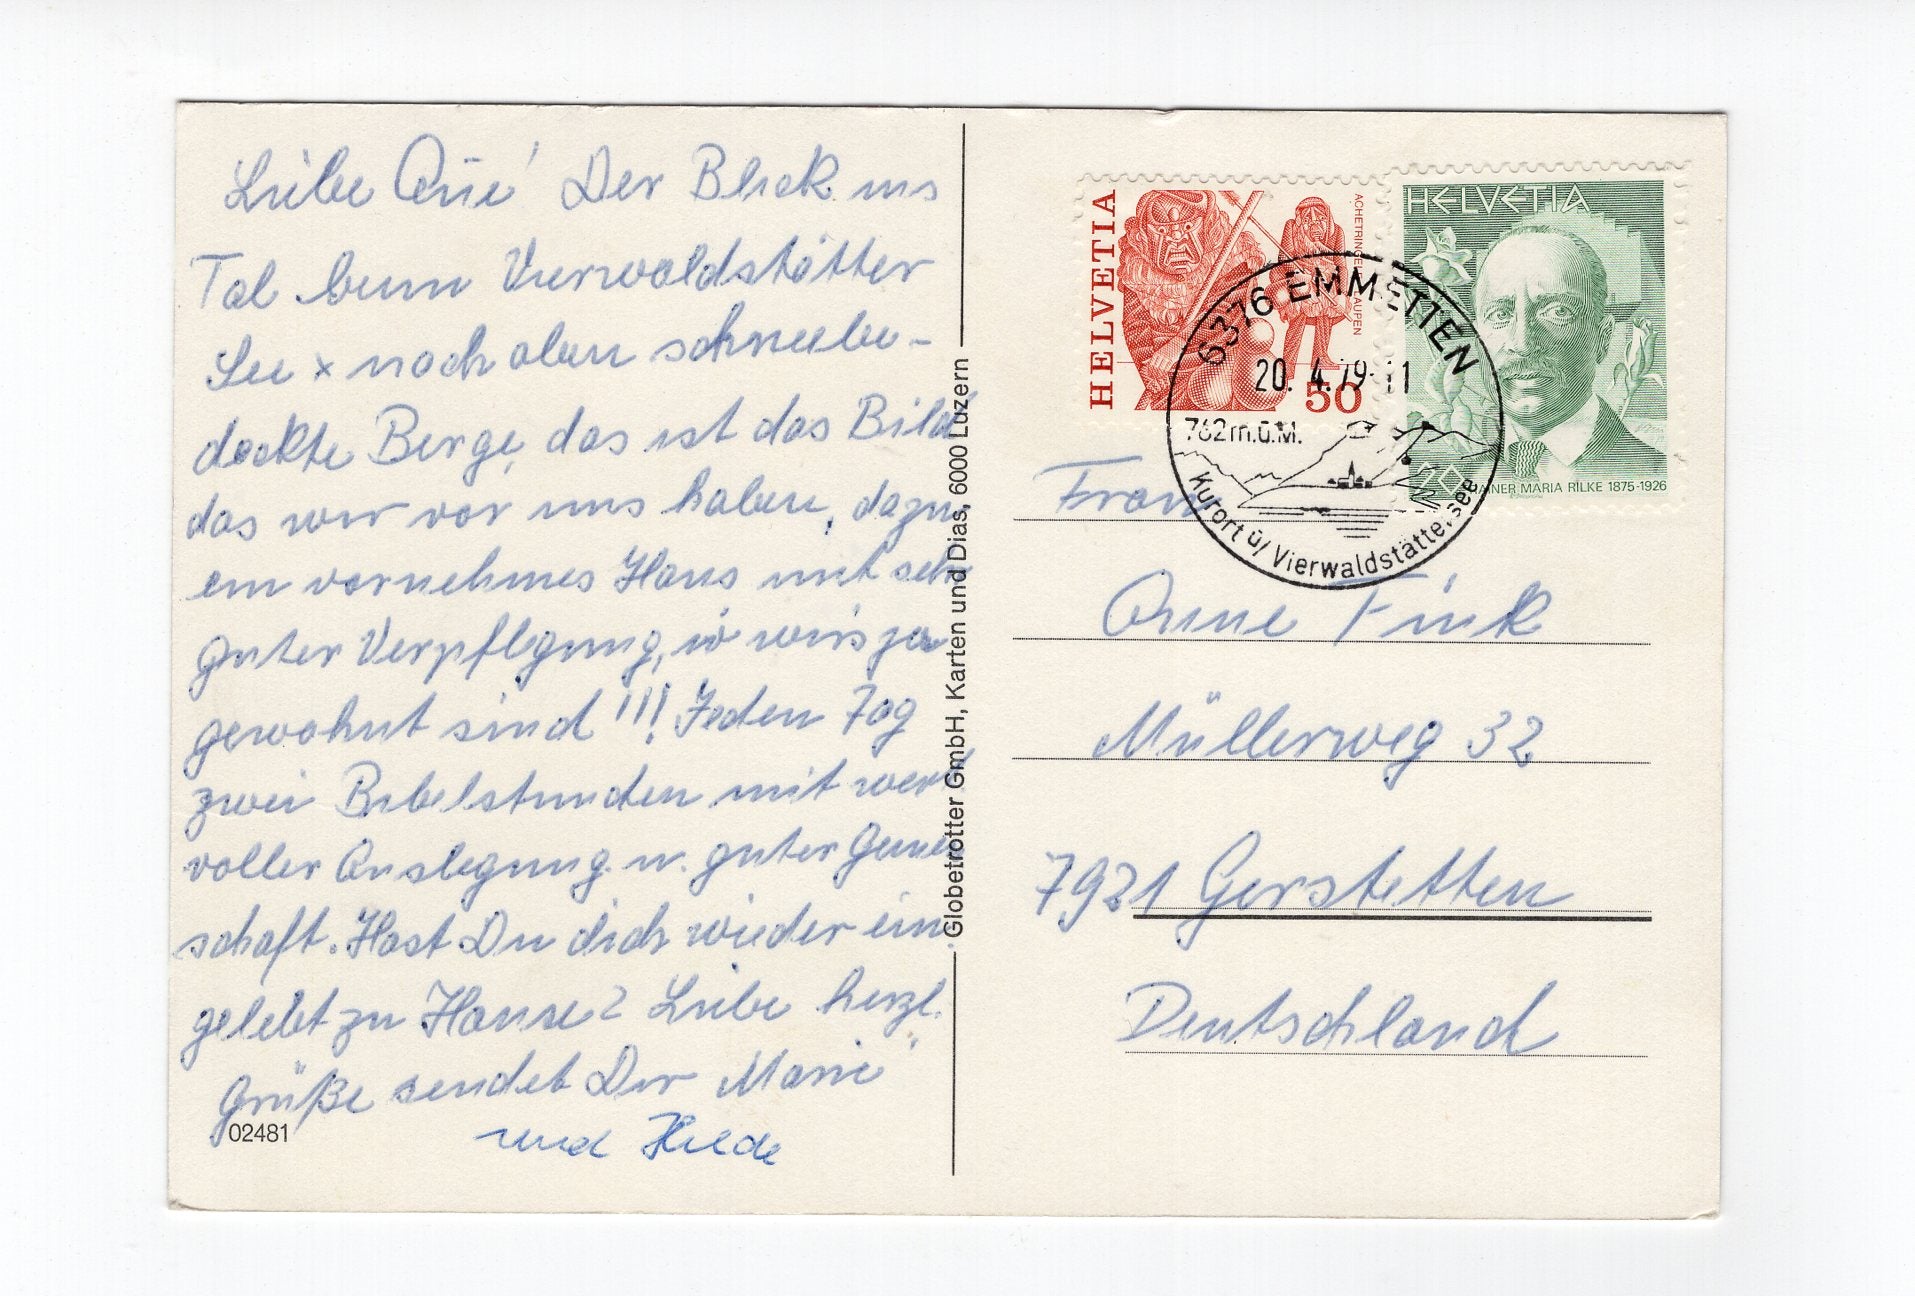 Liebe Anne! Der Blick ins
Tal beim Vierwaldstätter
See + noch oben schneebe-
deckte Berge, das ist das Bild
das wir vor uns haben, dazu
ein vornehmes Haus mit sehr
guter Verpflegung, wie wir's ja
gewohnt sind!!! Jeden Tag
zwei Bibelstunden mit wert
voller Auslegung u. guter Gemein
schaft. Hast Du dich wieder ein
gelebt zu Hause? Liebe herzl.
Grüße sendet Dir Marie
und Hilde
02481
Globetrotter GmbH, Karten und Dias, 6000 Luzern
HELVETIA
ACHETRINGELE LAUPEN
50
HELVETIA
20
RAINER MARIA RILKE 1875-1926
6376 EMMETTEN
20. 4.79-11
762 m.ü.M.
Kurort ü/Vierwaldstättersee
Frau
Anne Fink
Müllerweg 32
7921 Gerstetten
Deutschland